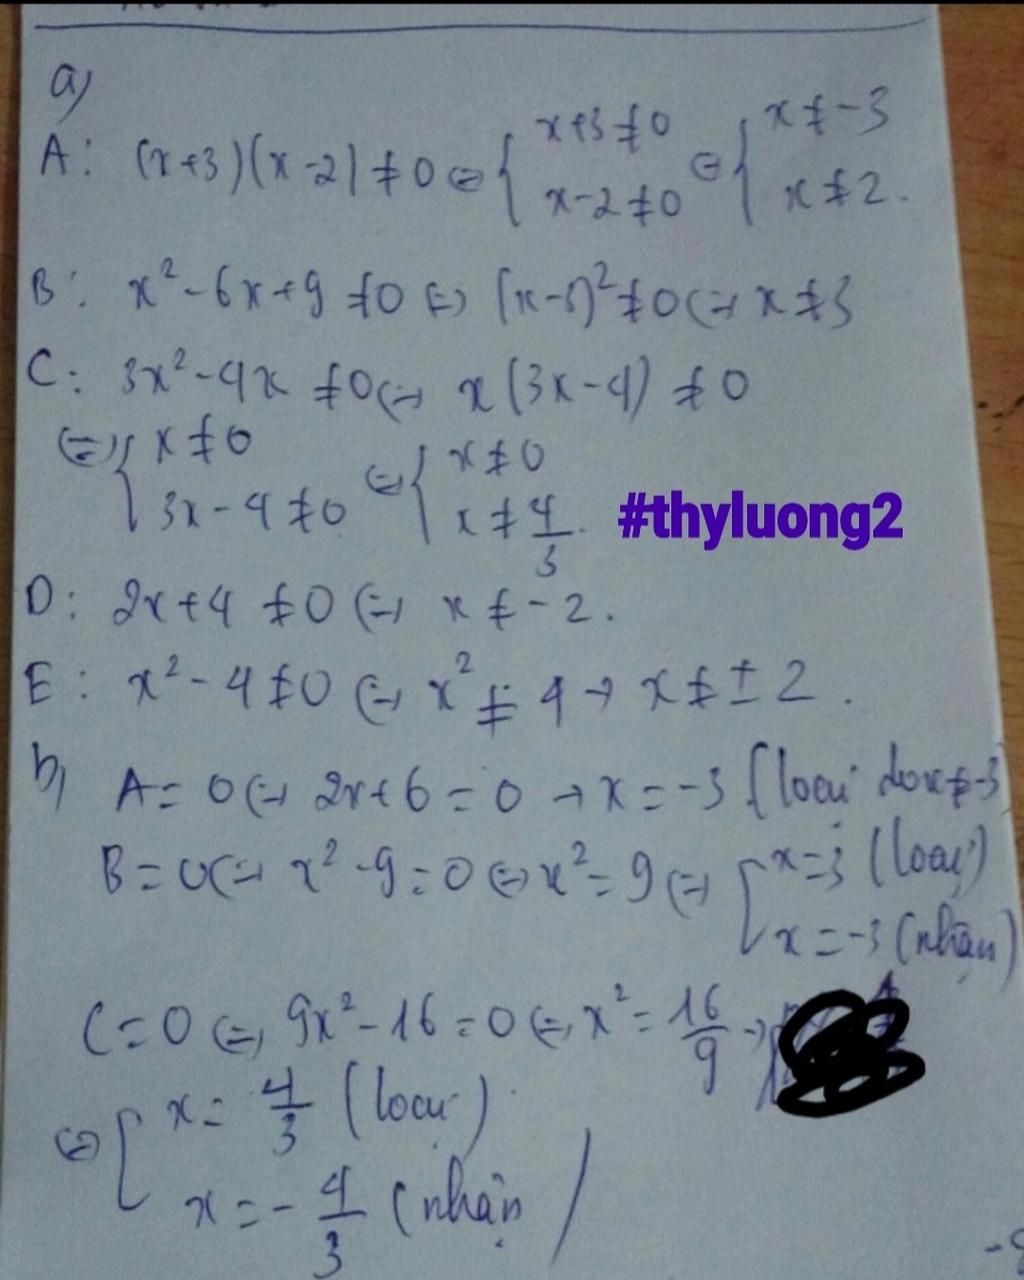 a)
A: (x+3)(x-2) ≠ 0 ⇔ { x+3 ≠ 0 ⇔ { x ≠ -3
x-2 ≠ 0 x ≠ 2.
B: x² - 6x + 9 ≠ 0 ⇔ (x-3)² ≠ 0 ⇔ x ≠ 3
C: 3x² - 4x ≠ 0 ⇔ x(3x-4) ≠ 0
⇔ { x ≠ 0 ⇔ { x ≠ 0
3x - 4 ≠ 0 x ≠ 4/3.
#thyluong2
D: 2x+4 ≠ 0 ⇔ x ≠ -2.
E: x² - 4 ≠ 0 ⇔ x² ≠ 4 → x ≠ ± 2.
b) A = 0 ⇔ 2x+6 = 0 → x = -3 (loại do x ≠ -3
B = 0 ⇔ x² - 9 = 0 ⇔ x² = 9 ⇔ [ x = 3 (loại)
x = -3 (nhận)
C = 0 ⇔ 9x² - 16 = 0 ⇔ x² = 16/9 →
⇔ [ x = 4/3 (loại)
x = - 4/3 (nhận)